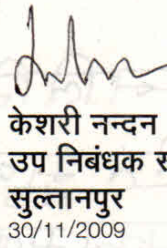 केशरी नन्दन
उप निबंधक
सुल्तानपुर
30/11/2009